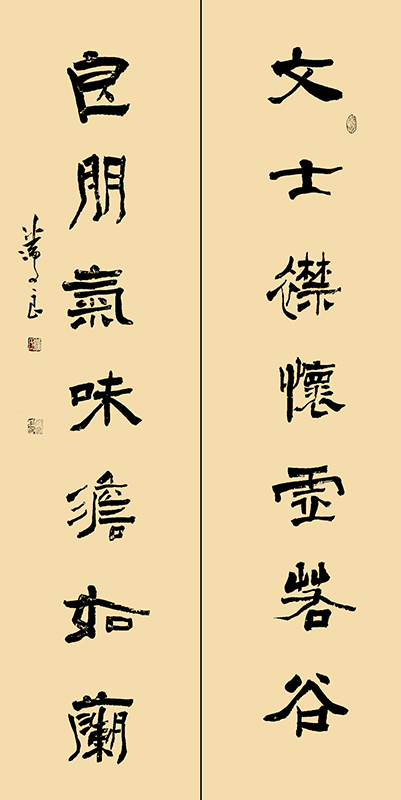 文士襟懷虛若谷
良朋氣味澹如蘭